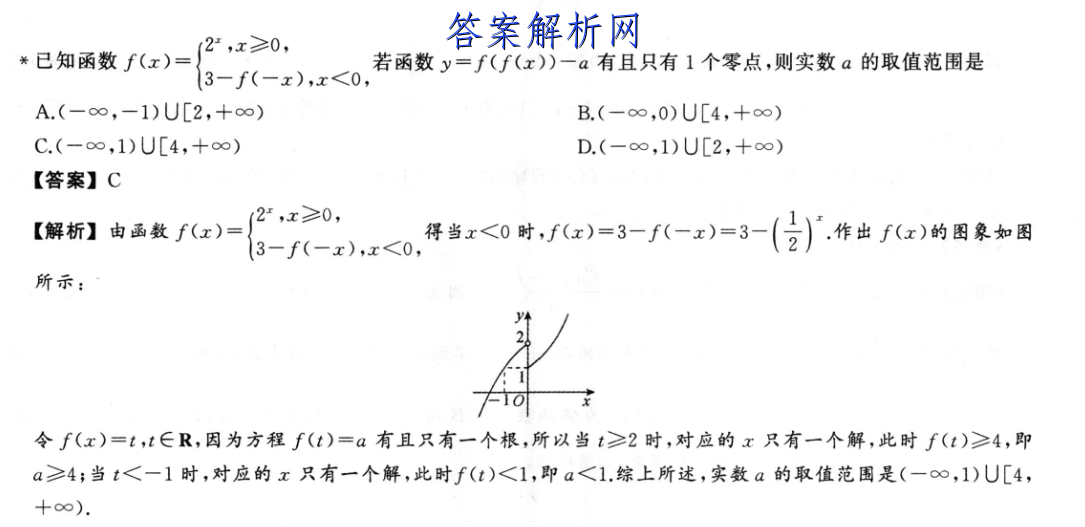 答案解析网
*已知函数 f(x)={2^x,x≥0, 3-f(-x),x<0, 若函数 y=f(f(x))-a 有且只有1个零点,则实数 a 的取值范围是
A.(-∞,-1)∪[2,+∞) B.(-∞,0)∪[4,+∞)
C.(-∞,1)∪[4,+∞) D.(-∞,1)∪[2,+∞)
【答案】C
【解析】由函数 f(x)={2^x,x≥0, 3-f(-x),x<0, 得当x<0时,f(x)=3-f(-x)=3-(1/2)^x.作出 f(x)的图象如图
所示:
y
2
1
-1 O x
令 f(x)=t,t∈R,因为方程 f(t)=a 有且只有一个根,所以当 t≥2 时,对应的 x 只有一个解,此时 f(t)≥4,即
a≥4;当 t<-1 时,对应的 x 只有一个解,此时f(t)<1,即 a<1.综上所述,实数 a 的取值范围是(-∞,1)∪[4,
+∞).